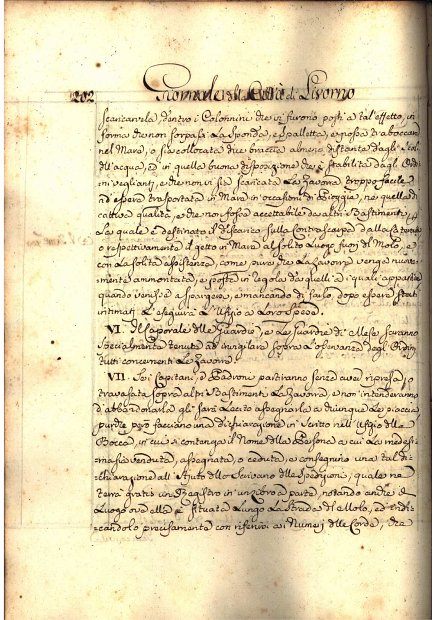 202 Giornale di Livorno
scaricarvela, dentro i Colonnini che vi furono posti a tal'effetto, in
forma che non sorpassi La Sponda, e Spalletta, e possa traboccar
nel Mare, o sia collocata due braccia almeno distante dagli Scoli
dell'acqua, ed in quella buona disposizione che è stabilita dagli Ordi
ni veglianti, e che non vi sia scaricata La Zavorra troppo facile
ad essere trasportata in Mare in occasioni di Pioggie, ne quella di
cattiva qualità, e che non fosse accettabile da altri Bastimenti
La quale è destinato il discarico sulla
o respettivamente il getto in Mare al solito Luogo fuori del Molo, e
con La solita assistenza, come pure che La Zavorra venga nuova
mente ammontata, e posta in regola da quelli, a i quali appartiene
quando venisse a spargersi, e mancando di farlo, dopo essere stati
intimati L'eseguirà L'Ufizio a Loro Spese.
VI. Il Caporale delle Guardie, e Le Guardie di esse saranno
specialmente tenute ad invigilare sopra L'osservanza degli Ordini
tutti concernenti Le Zavorre.
VII. Se i Capitani, o Padroni partiranno senza aver ripresa, o
travasata sopra altri Bastimenti La Zavorra, e non intenderanno
d'abbandonarla gli sarà Lecito assegnarla a chiunque Le piaccia
purche però facciano una dichiarazione in Scritto nell'Ufizio della
Bocca, in cui si contenga il Nome della Persona a cui La medesi
ma sia venduta, assegnata, o ceduta, e consegnino una tal di
chiarazione all'Ajuto dello Scrivano delle Spedizioni, quale ne
terrà gratis un Registro in un Libro a parte, notando anche il
Luogo ove ella è situata Lungo La Strada del Molo, ed indi
candolo precisamente con riferirsi a i Numeri delle Corde, che